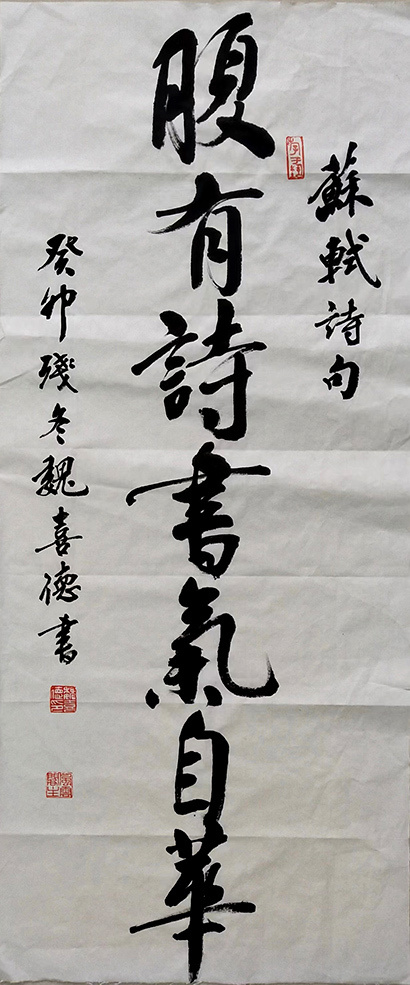 蘇軾詩句
腹有詩書氣自華
癸卯殘冬魏喜德書